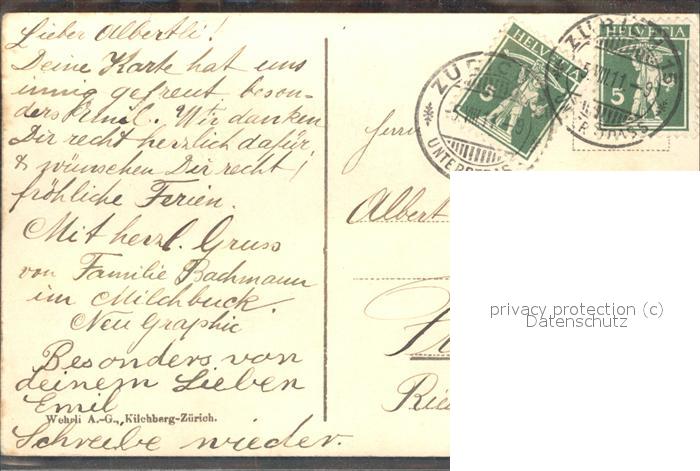 Lieber Albertli!
Deine Karte hat uns
innig gefreut beson-
ders Emil. Wir danken
Dir recht herzlich dafür
& wünschen Dir recht
fröhliche Ferien.
Mit herzl. Gruss
von Familie Bachmann
im Milchbuck.
Neu Graphic
Besonders von
deinem Lieben
Emil
Wehrli A.-G., Kilchberg-Zürich.
Schreibe wieder.
HELVETIA
5
HELVETIA
5
ZÜRICH
UNTERSTRASS
Herrn
Albert
privacy protection (c)
Datenschutz